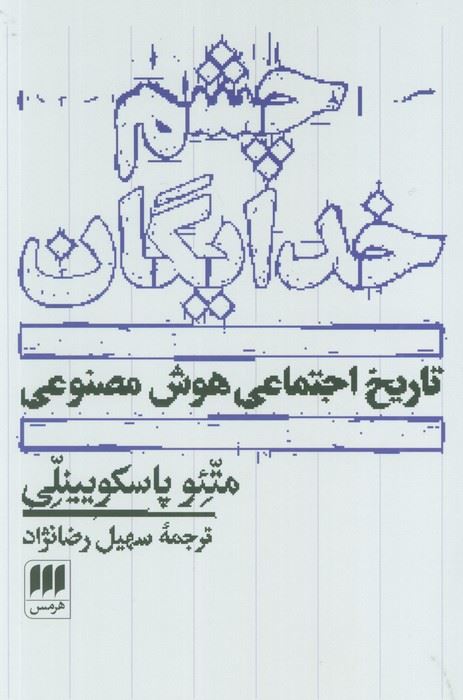 چشم
خدایگان
تاریخ اجتماعی هوش مصنوعی
متّئو پاسکویینلّی
ترجمهٔ سهیل رضانژاد
هرمس